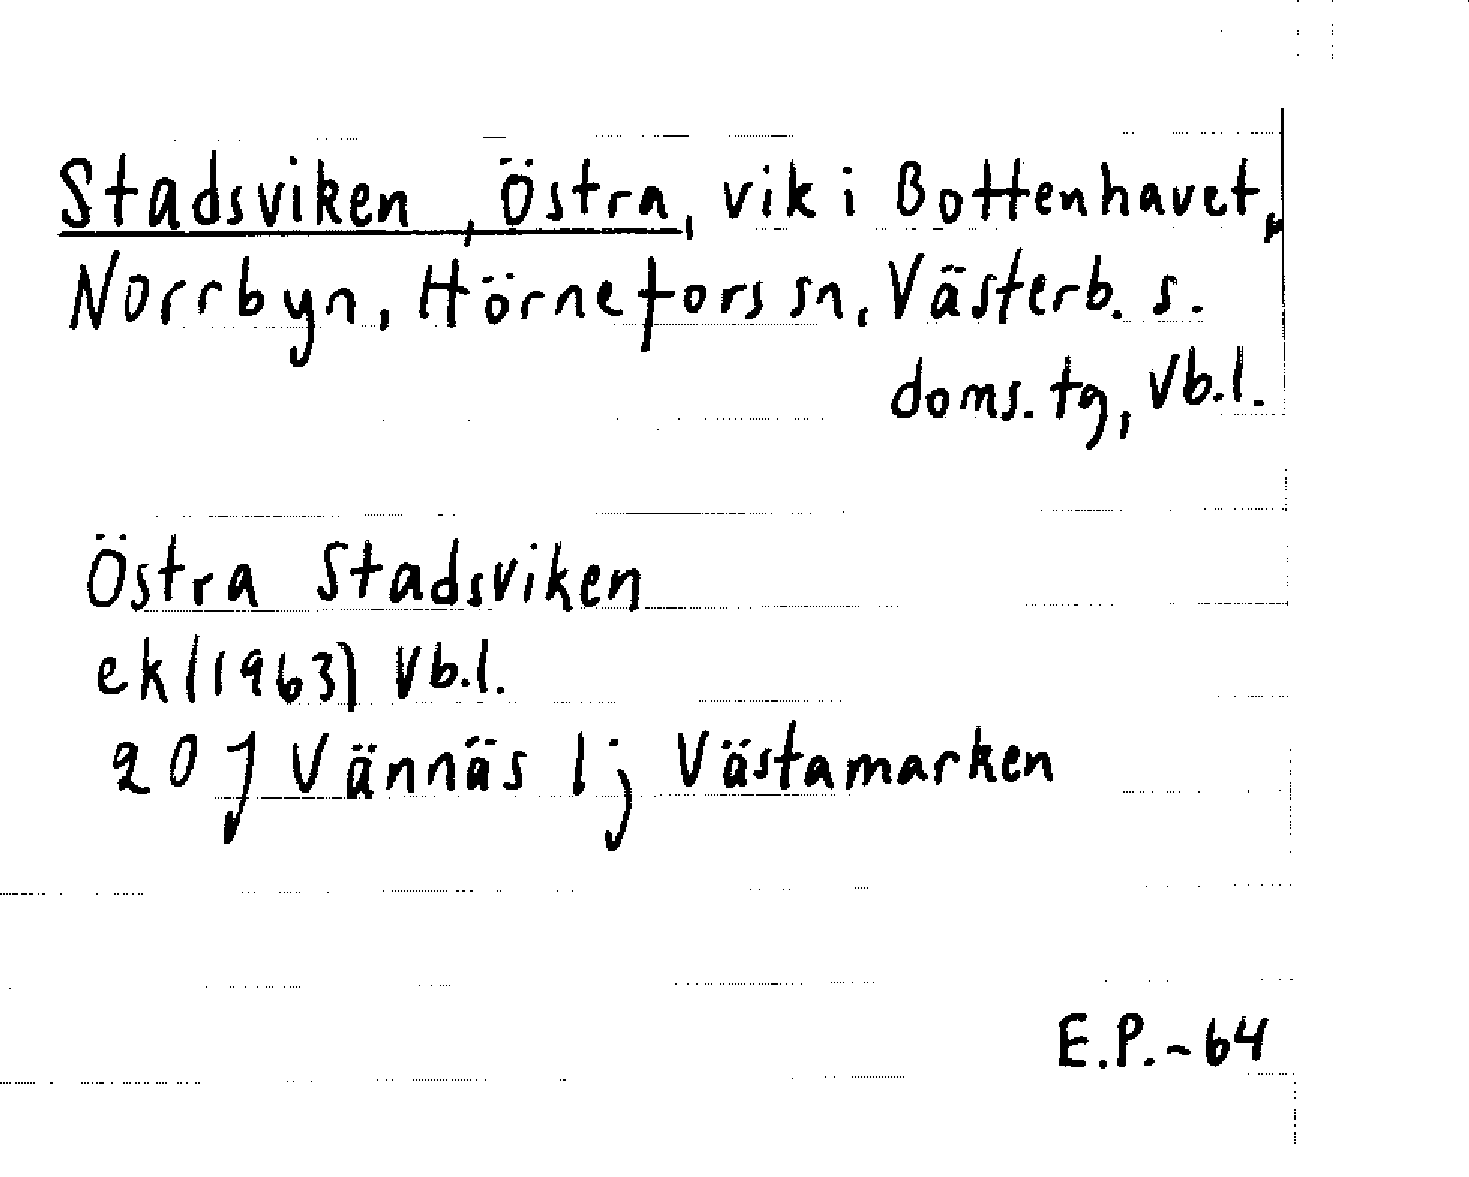 Stadsviken, Östra, vik i Bottenhavet,
Norrbyn, Hörnefors sn, Västerb. s.
doms. tg, Vb.l.
Östra Stadsviken
ek (1963) Vb.l.
20 J Vännäs 1 j Västamarken
E.P. - 64